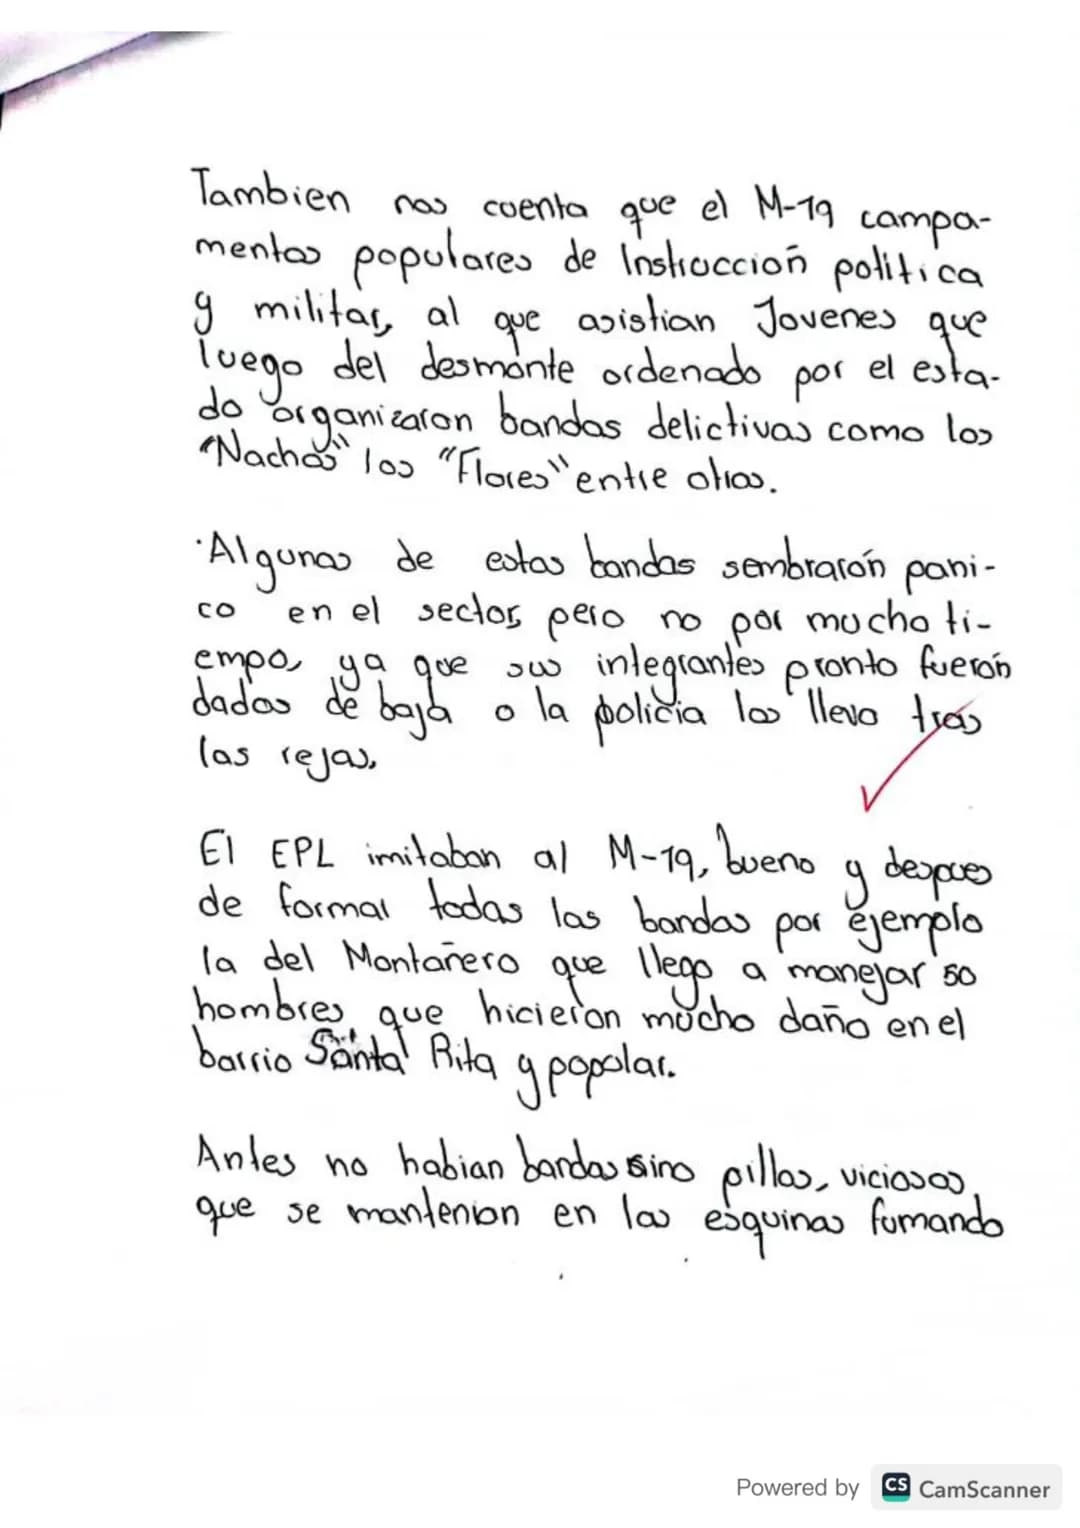 Tambien nos cuenta que el M-19 campa-
mentos populares de Instruccion politica
y militar, al que asistian Jovenes que
luego del desmonte ordenado por el esta-
do organizaron bandas delictivas como los
"Nachos" los "Flores" entre otras.
Algunas de estas bandas sembrarón pani-
co en el sector, pero no por mucho ti-
empo, ya que sus integrantes pronto fuerón
dados de baja o la policia los llevo tras
las rejas.
El EPL imitaban al M-19, bueno y despues
de formar todas las bandas por ejemplo
la del Montañero que llego a manejar 50
hombres que hicieron mucho daño en el
barrio Santa Rita y popular.
Antes no habian bandas sino pillos, viciosos,
que se mantenian en las esquinas fumando
Powered by CS CamScanner